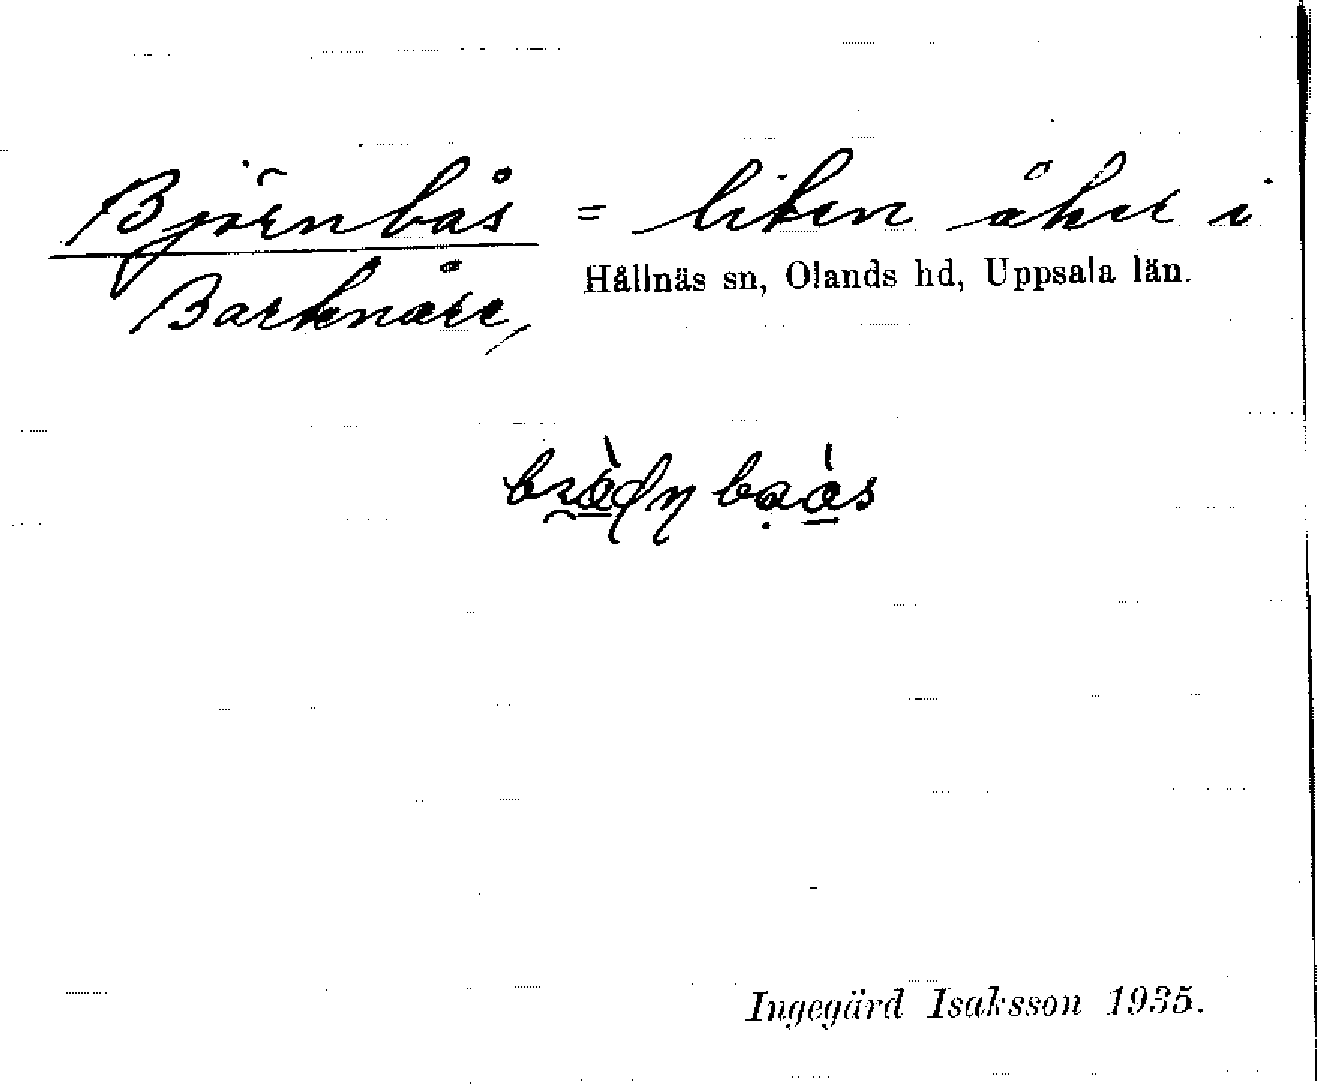 Björnbås = liten åker i
Hållnäs sn, Olands hd, Uppsala län.
Barknåre,
Ingegärd Isaksson 1935.